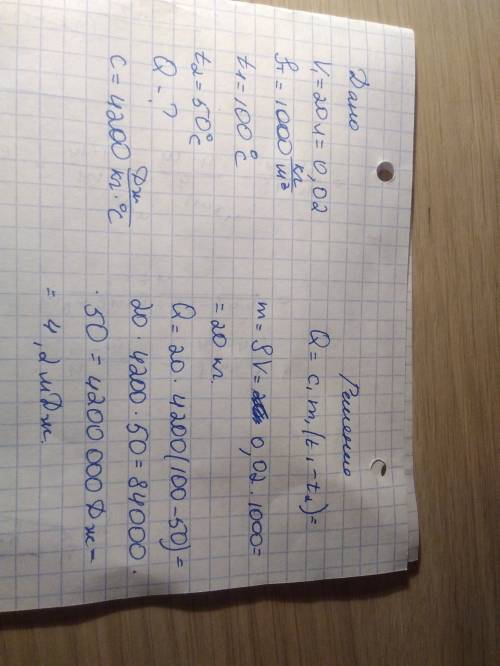 Дано
V₁ = 20 л = 0,02
ρ₁ = 1000 кг/м³
t₁ = 100°C
t₂ = 50°C
Q = ?
c = 4200 Дж/кг·°C
Решение
Q = c₁m₁(t₁ - t₂) =
m = ρV = 0,02 · 1000 =
= 20 кг.
Q = 20 · 4200(100 - 50) =
20 · 4200 · 50 = 84000 ·
· 50 = 4200 000 Дж =
= 4,2 мДж.